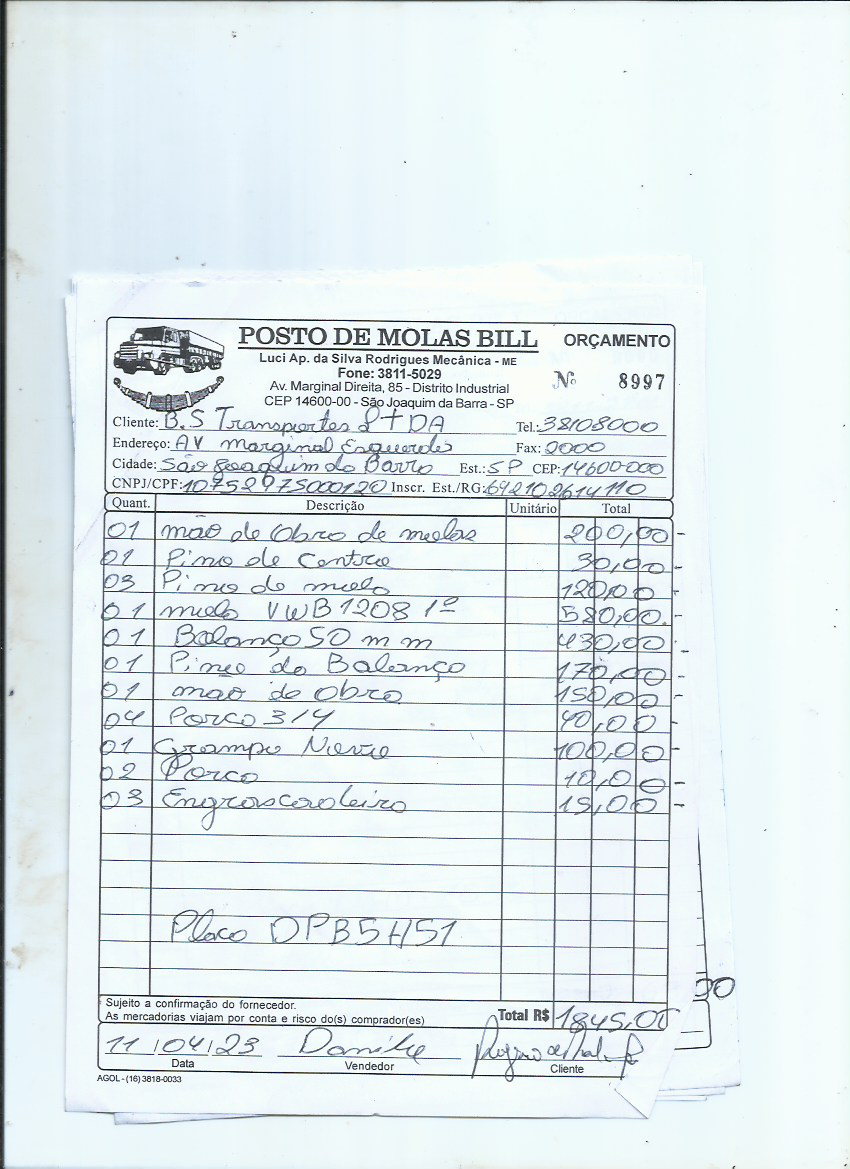 POSTO DE MOLAS BILL
ORÇAMENTO
Luci Ap. da Silva Rodrigues Mecânica - ME
Fone: 3811-5029
Nº 8997
Av. Marginal Direita, 85 - Distrito Industrial
CEP 14600-00 - São Joaquim da Barra - SP
Cliente: B.S Transportes LTDA Tel.: 38108000
Endereço: AV marginal Esquerda Fax: 2000
Cidade: São Joaquim da Barra Est.: SP CEP: 14600-000
CNPJ/CPF: 10752975000120 Inscr. Est./RG: 642102614110
Quant. Descrição Unitário Total
01 mão de Obra de molas 200,00
01 Pino de Centro 30,00
03 Pino de mola 120,00
01 mola VWB1208 1ª 580,00
01 Balanço 50 mm 430,00
01 Pino do Balanço 170,00
01 mão de Obra 150,00
04 Porca 3/4 40,00
01 Grampo Novo 100,00
02 Porca 10,00
03 Engraxadeira 15,00
Placa DPB5H51
00
Sujeito a confirmação do fornecedor.
As mercadorias viajam por conta e risco do(s) comprador(es)
Total R$ 1845,00
11/04/23
Data Vendedor Cliente
AGOL - (16) 3818-0033